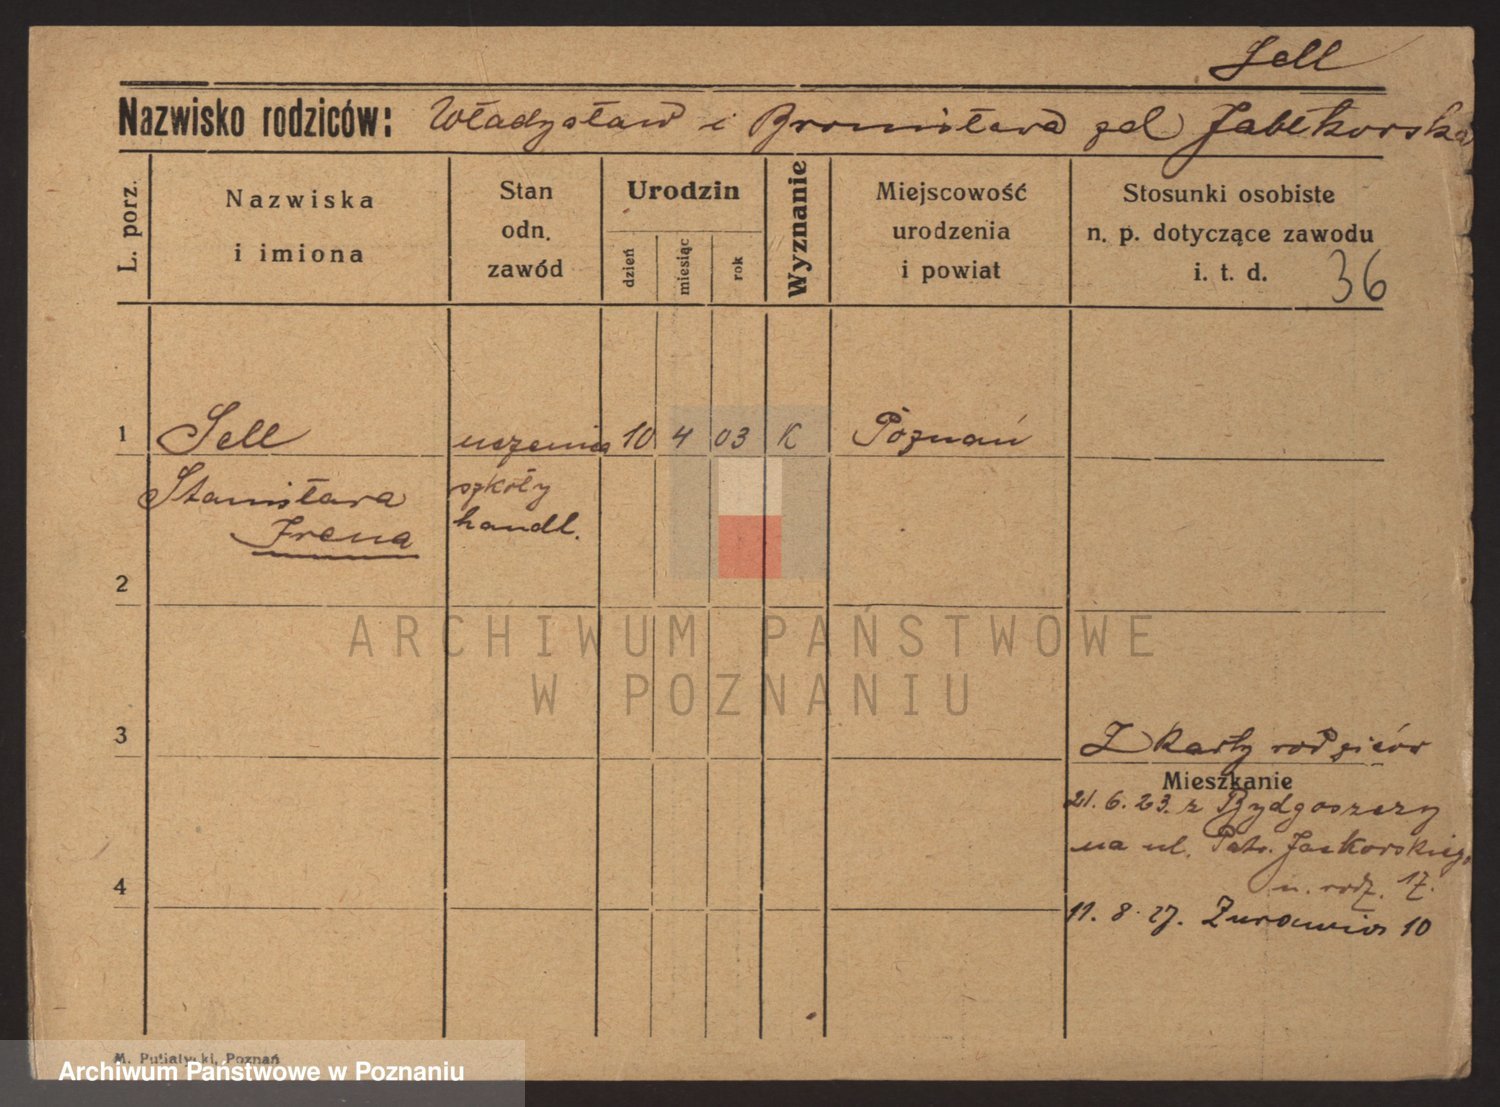 Sell
Nazwisko rodziców: Władysław i Bronisława
L. porz.
Nazwiska
i imiona
Stan
odn.
zawód
Urodzin
dzień
miesiąc
rok
Wyznanie
Miejscowość
urodzenia
i powiat
Stosunki osobiste
n. p. dotyczące zawodu
i. t. d.
36
1 Sell uczenica 10 4 03 K Poznań
Stanisława szkoły
Irena handl.
2
ARCHIWUM PAŃSTWOWE
W POZNANIU
3
Z karty rodziców
Mieszkanie
21. 6. 23. z Bydgoszczy
na ul. Patr. Jackowskiego
u. rodz. 17.
4
11. 8. 27. Żurawia 10
M. Putiatycki, Poznań
Archiwum Państwowe w Poznaniu